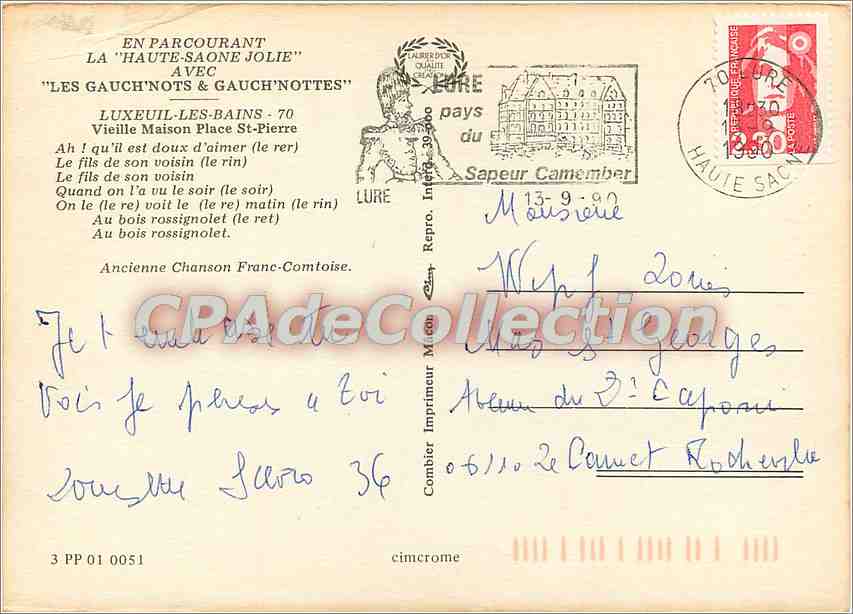 EN PARCOURANT
LA "HAUTE-SAONE JOLIE"
AVEC
"LES GAUCH'NOTS & GAUCH'NOTTES"
LUXEUIL-LES-BAINS - 70
Vieille Maison Place St-Pierre
Ah ! qu'il est doux d'aimer (le rer)
Le fils de son voisin (le rin)
Le fils de son voisin
Quand on l'a vu le soir (le soir)
On le (le re) voit le (le re) matin (le rin)
Au bois rossignolet (le ret)
Au bois rossignolet.
Ancienne Chanson Franc-Comtoise.
Je t
Vois je penses a toi
36
3 PP 01 0051
cimcrome
Combier Imprimeur Macon
Repro. Interd. 39-000
LAURIER D'OR
QUALITE
CREATION
LURE
pays
du
Sapeur Camember
LURE
13-9-90
70 LURE
1990
HAUTE SAONE
REPUBLIQUE FRANÇAISE
2,30
LA POSTE
Monsieur
Louis
Mas St Georges
Avenue du
06110 Le Cannet Rocheville
CPAdeCollection